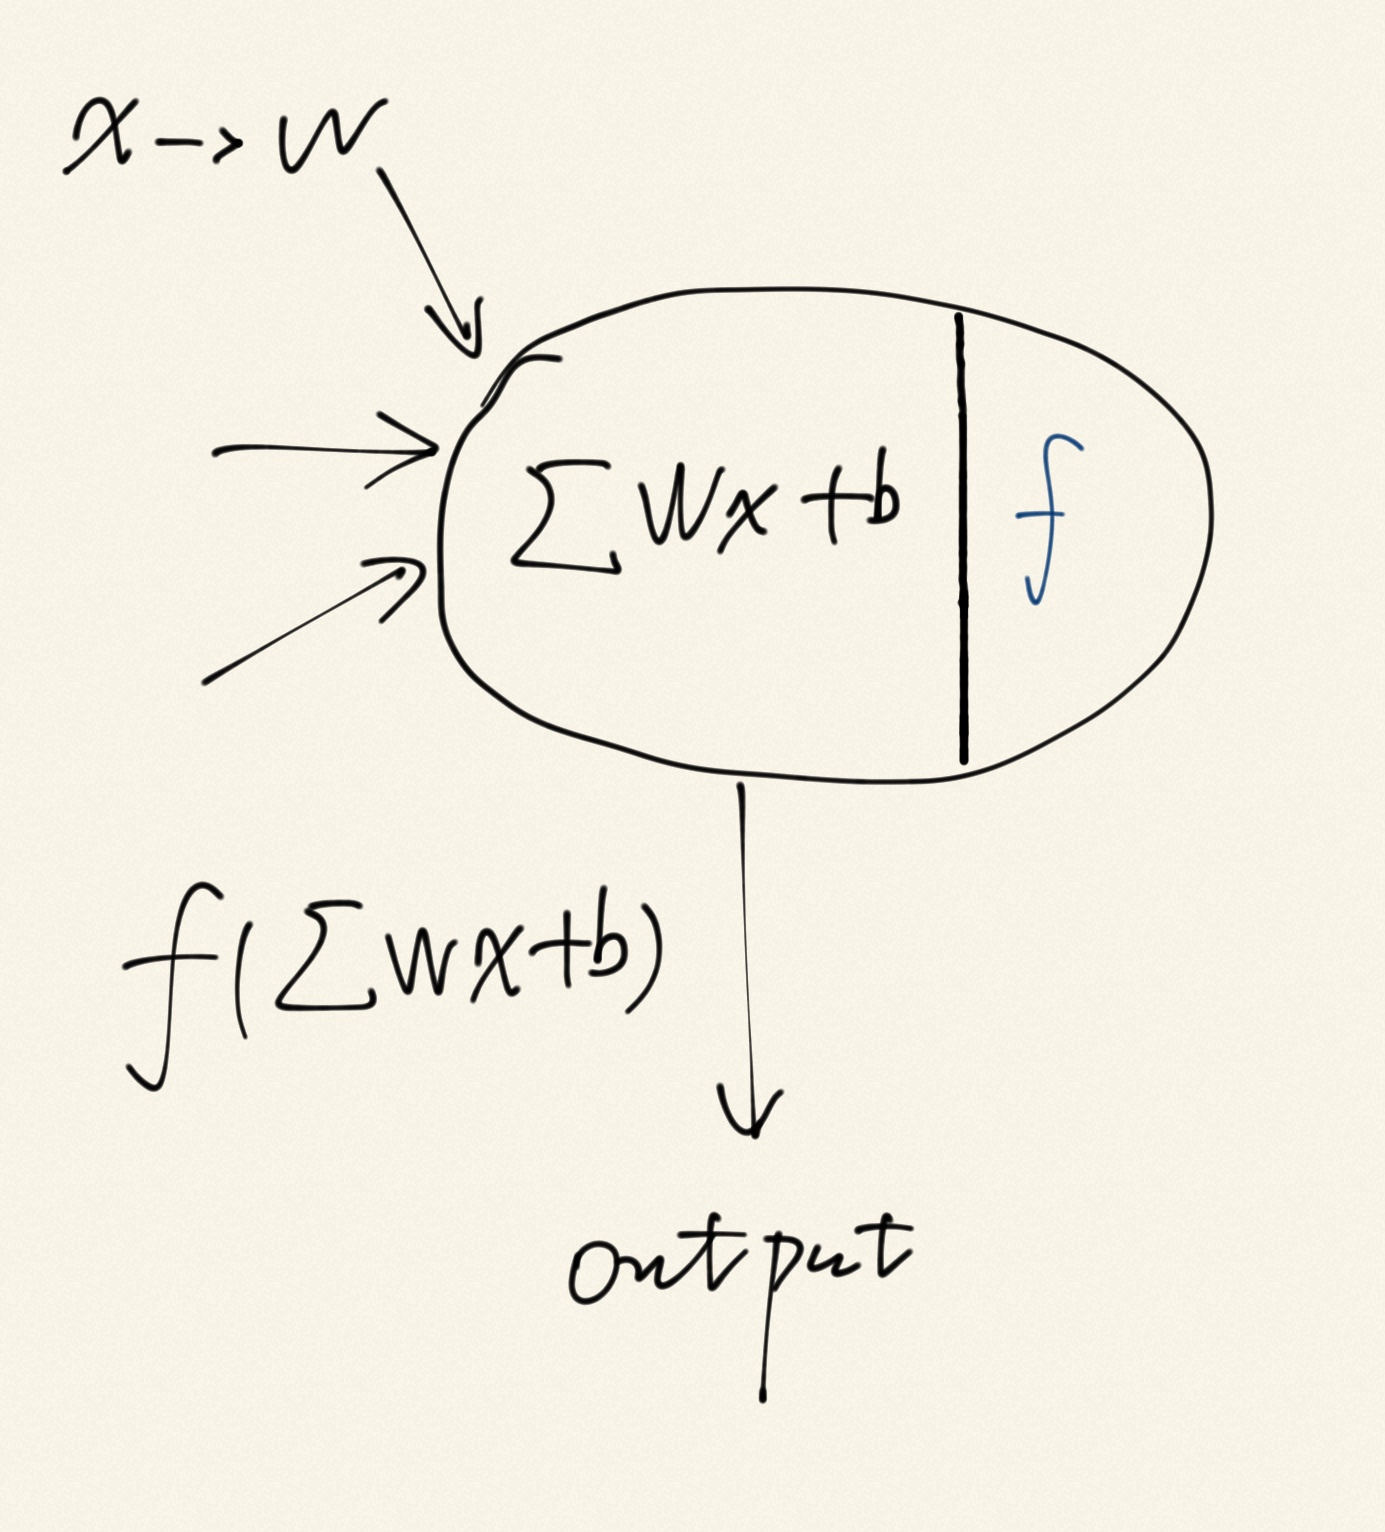 x → w
∑ Wx + b
f
f(∑ wx+b)
output